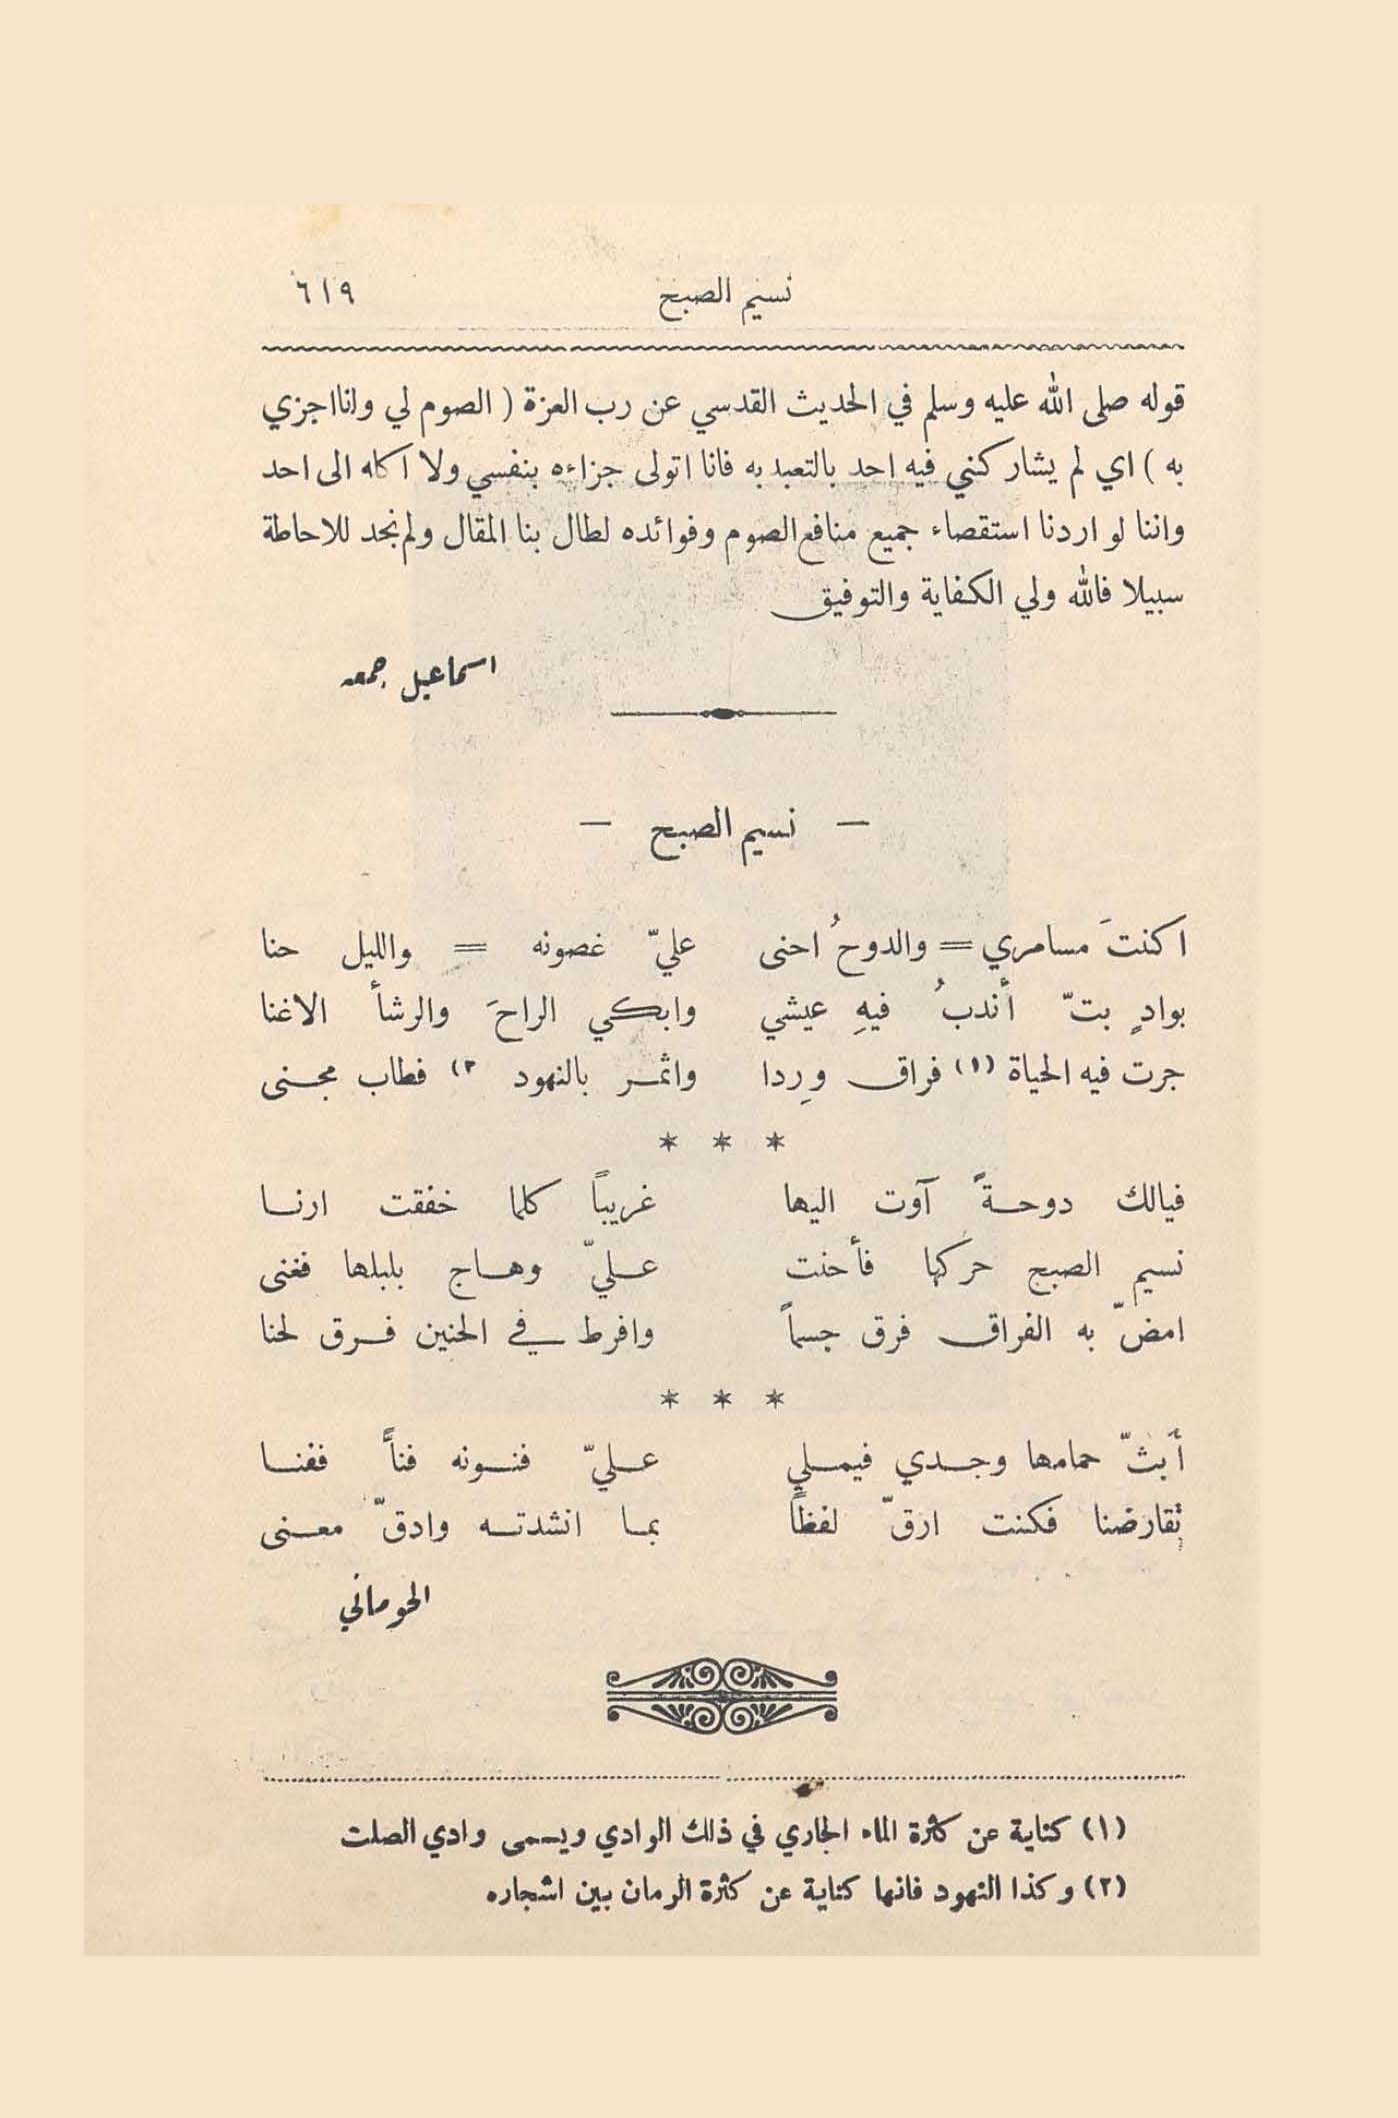 نسيم الصبح ٦١٩
قوله صلى الله عليه وسلم في الحديث القدسي عن رب العزة ( الصوم لي وانا اجزي
به ) اي لم يشاركني فيه احد بالتعبد به فانا اتولى جزاءه بنفسي ولا اكله الى احد
واننا لو اردنا استقصاء جميع منافع الصوم وفوائده لطال بنا المقال ولم نجد للاحاطة
سبيلا فالله ولي الكفاية والتوفيق
اسماعيل جمعه
— نسيم الصبح —
اكنتَ مسامري = والدوحُ احنى عليّ غصونه = والليل حنا
بوادٍ بتّ أندبُ فيهِ عيشي وابكي الراحَ والرشأ الاغنا
جرت فيه الحياة (١) فراق وِردا واثمر بالنهود (٢ فطاب مجنى
* * *
فيالك دوحةً آوت اليها غريباً كلما خفقت ارنا
نسيم الصبح حركها فأحنت عليّ وهاج بلبلها فغنى
امضّ به الفراق فرق جسماً وافرط في الحنين فرق لحنا
* * *
أبثّ حمامها وجدي فيملي عليّ فنونه فناً ففنا
تقارضنا فكنت ارقّ لفظاً بما انشدته وادقّ معنى
الحوماني
(١) كناية عن كثرة الماء الجاري في ذلك الوادي ويسمى وادي الصلت
(٢) وكذا النهود فانها كناية عن كثرة الرمان بين اشجاره